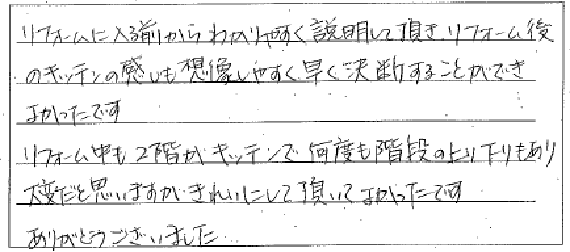 リフォームに入る前からわかりやすく説明して頂き、リフォーム後
のキッチンの感じも想像しやすく早く決断することができ
よかったです
リフォーム中も2階がキッチンで何度も階段の上り下りもあり
大変だと思いますがきれいにして頂いてよかったです
ありがとうございました…